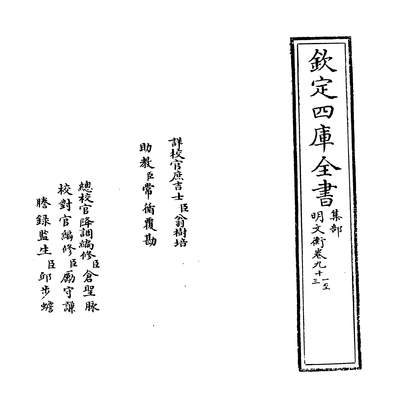 欽定四庫全書
集部
明文衡卷九十一至三
詳校官庶吉士臣翁樹培
助教臣常循覆勘
總校官降調編修臣倉聖脉
校對官編修臣厲守謙
謄錄監生臣邱步蟾